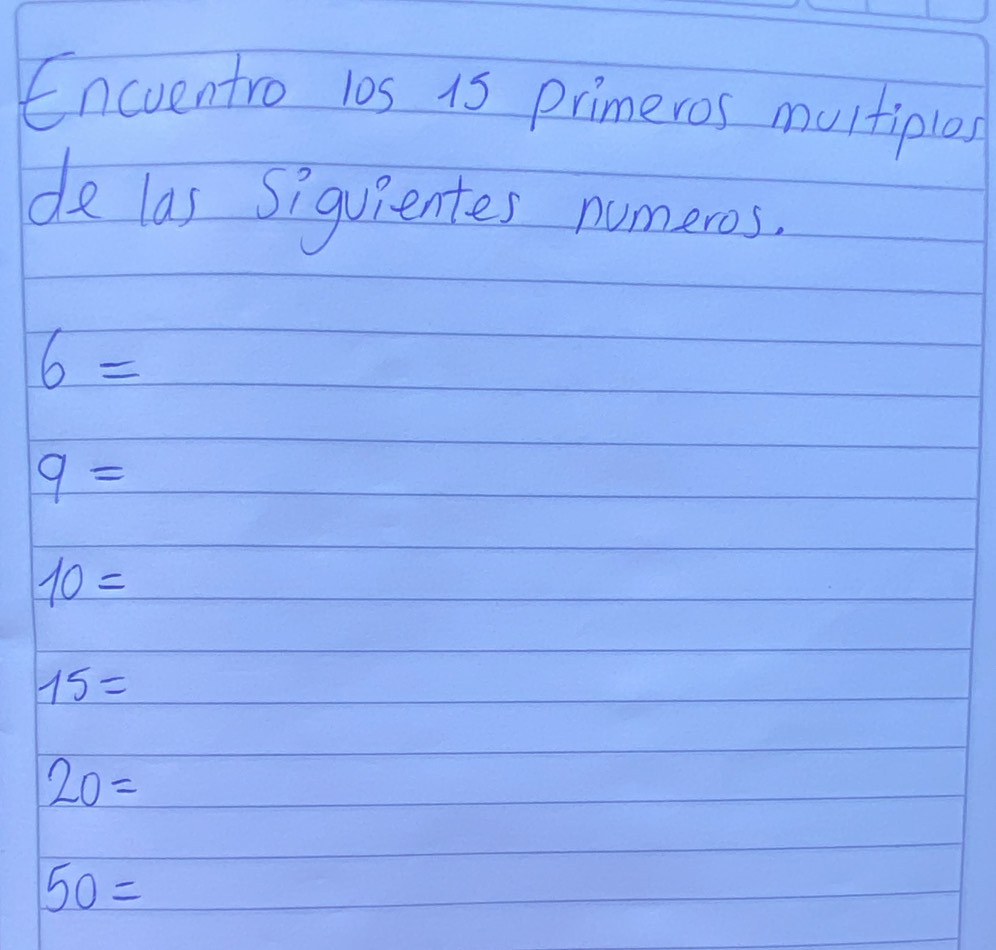 Encuentro los 15 primeros multiplos
de las siguientes numeros.
6 =
9 =
10 =
15 =
20 =
50 =